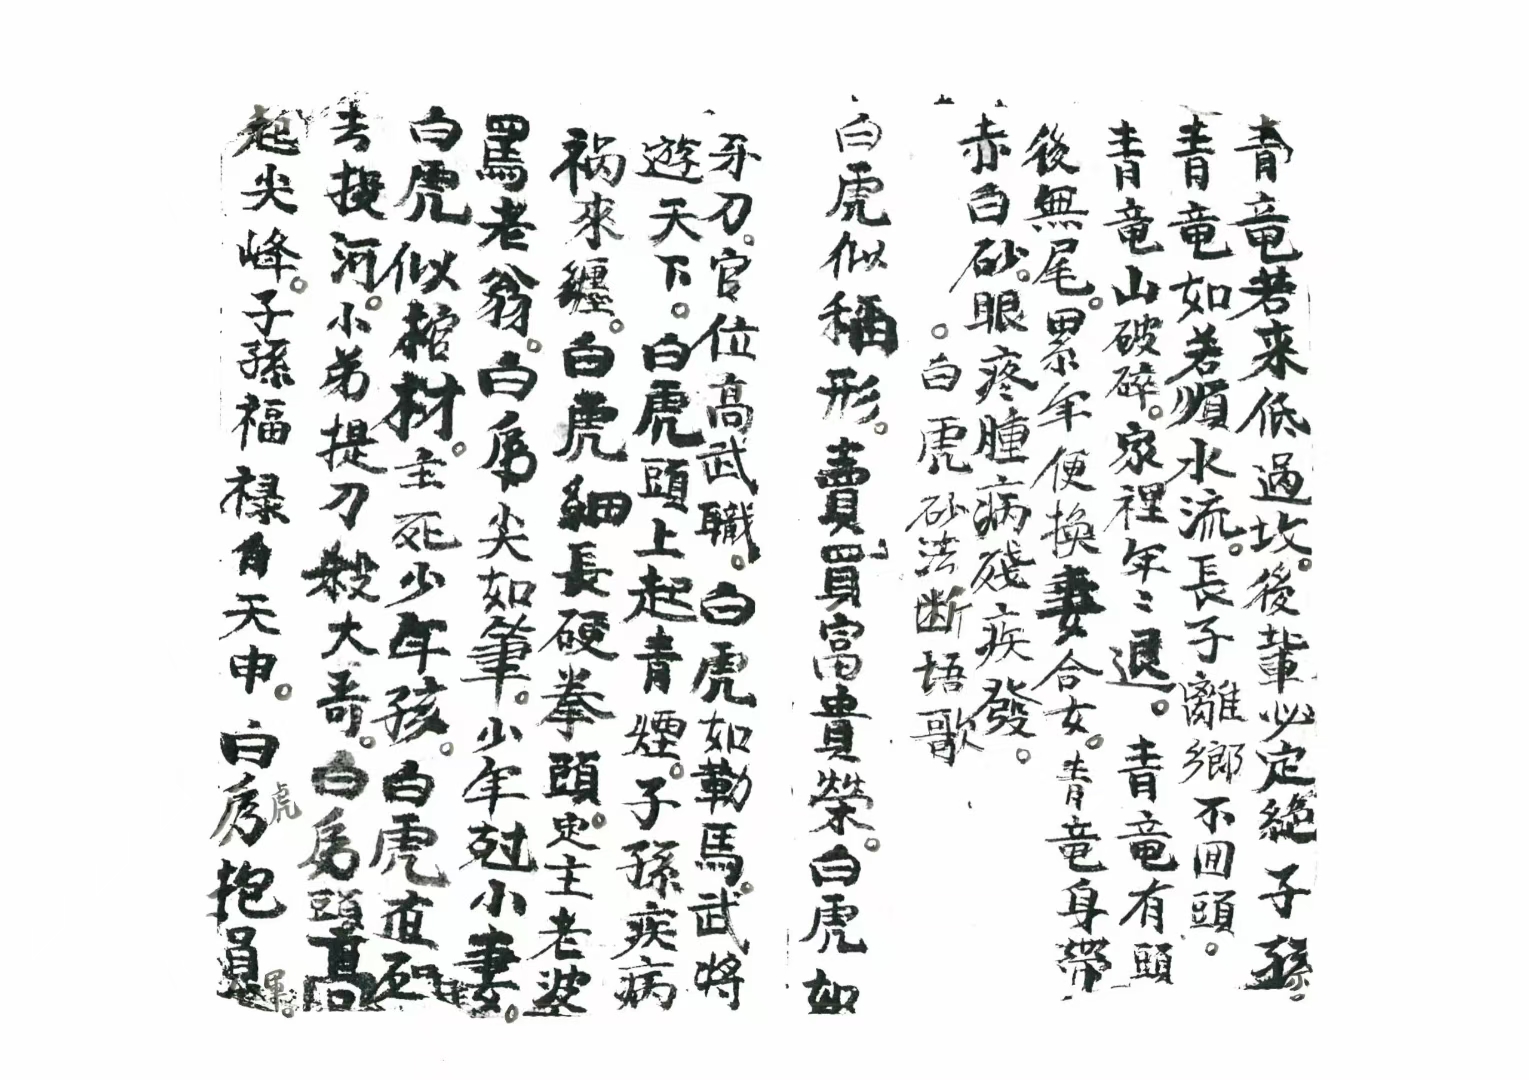 青竜若来低過坟。後輩必定绝子孫。
青竜如若順水流。長子離鄉不囬頭。
青竜山破碎。家裡年〻退。青竜有頭
後無尾。累年便換妻合女。青竜身帶
赤白砂。眼疼腫病殘疾發。
。白虎砂法断悟歌
白虎似稱形。賣買富貴榮。白虎如
牙刀。官位高武職。白虎如勒馬。武將
遊天下。白虎頭上起青煙。子孫疾病
祸來纏。白虎細長硬拳頭。定主老婆
罵老翁。白虎尖如筆。少年尅小妻。
白虎似棺材。主死少年孩。白虎直
去投河。小弟提刀殺大哥。白虎頭高
起尖峰。子孫福禄自天申。白虎抱